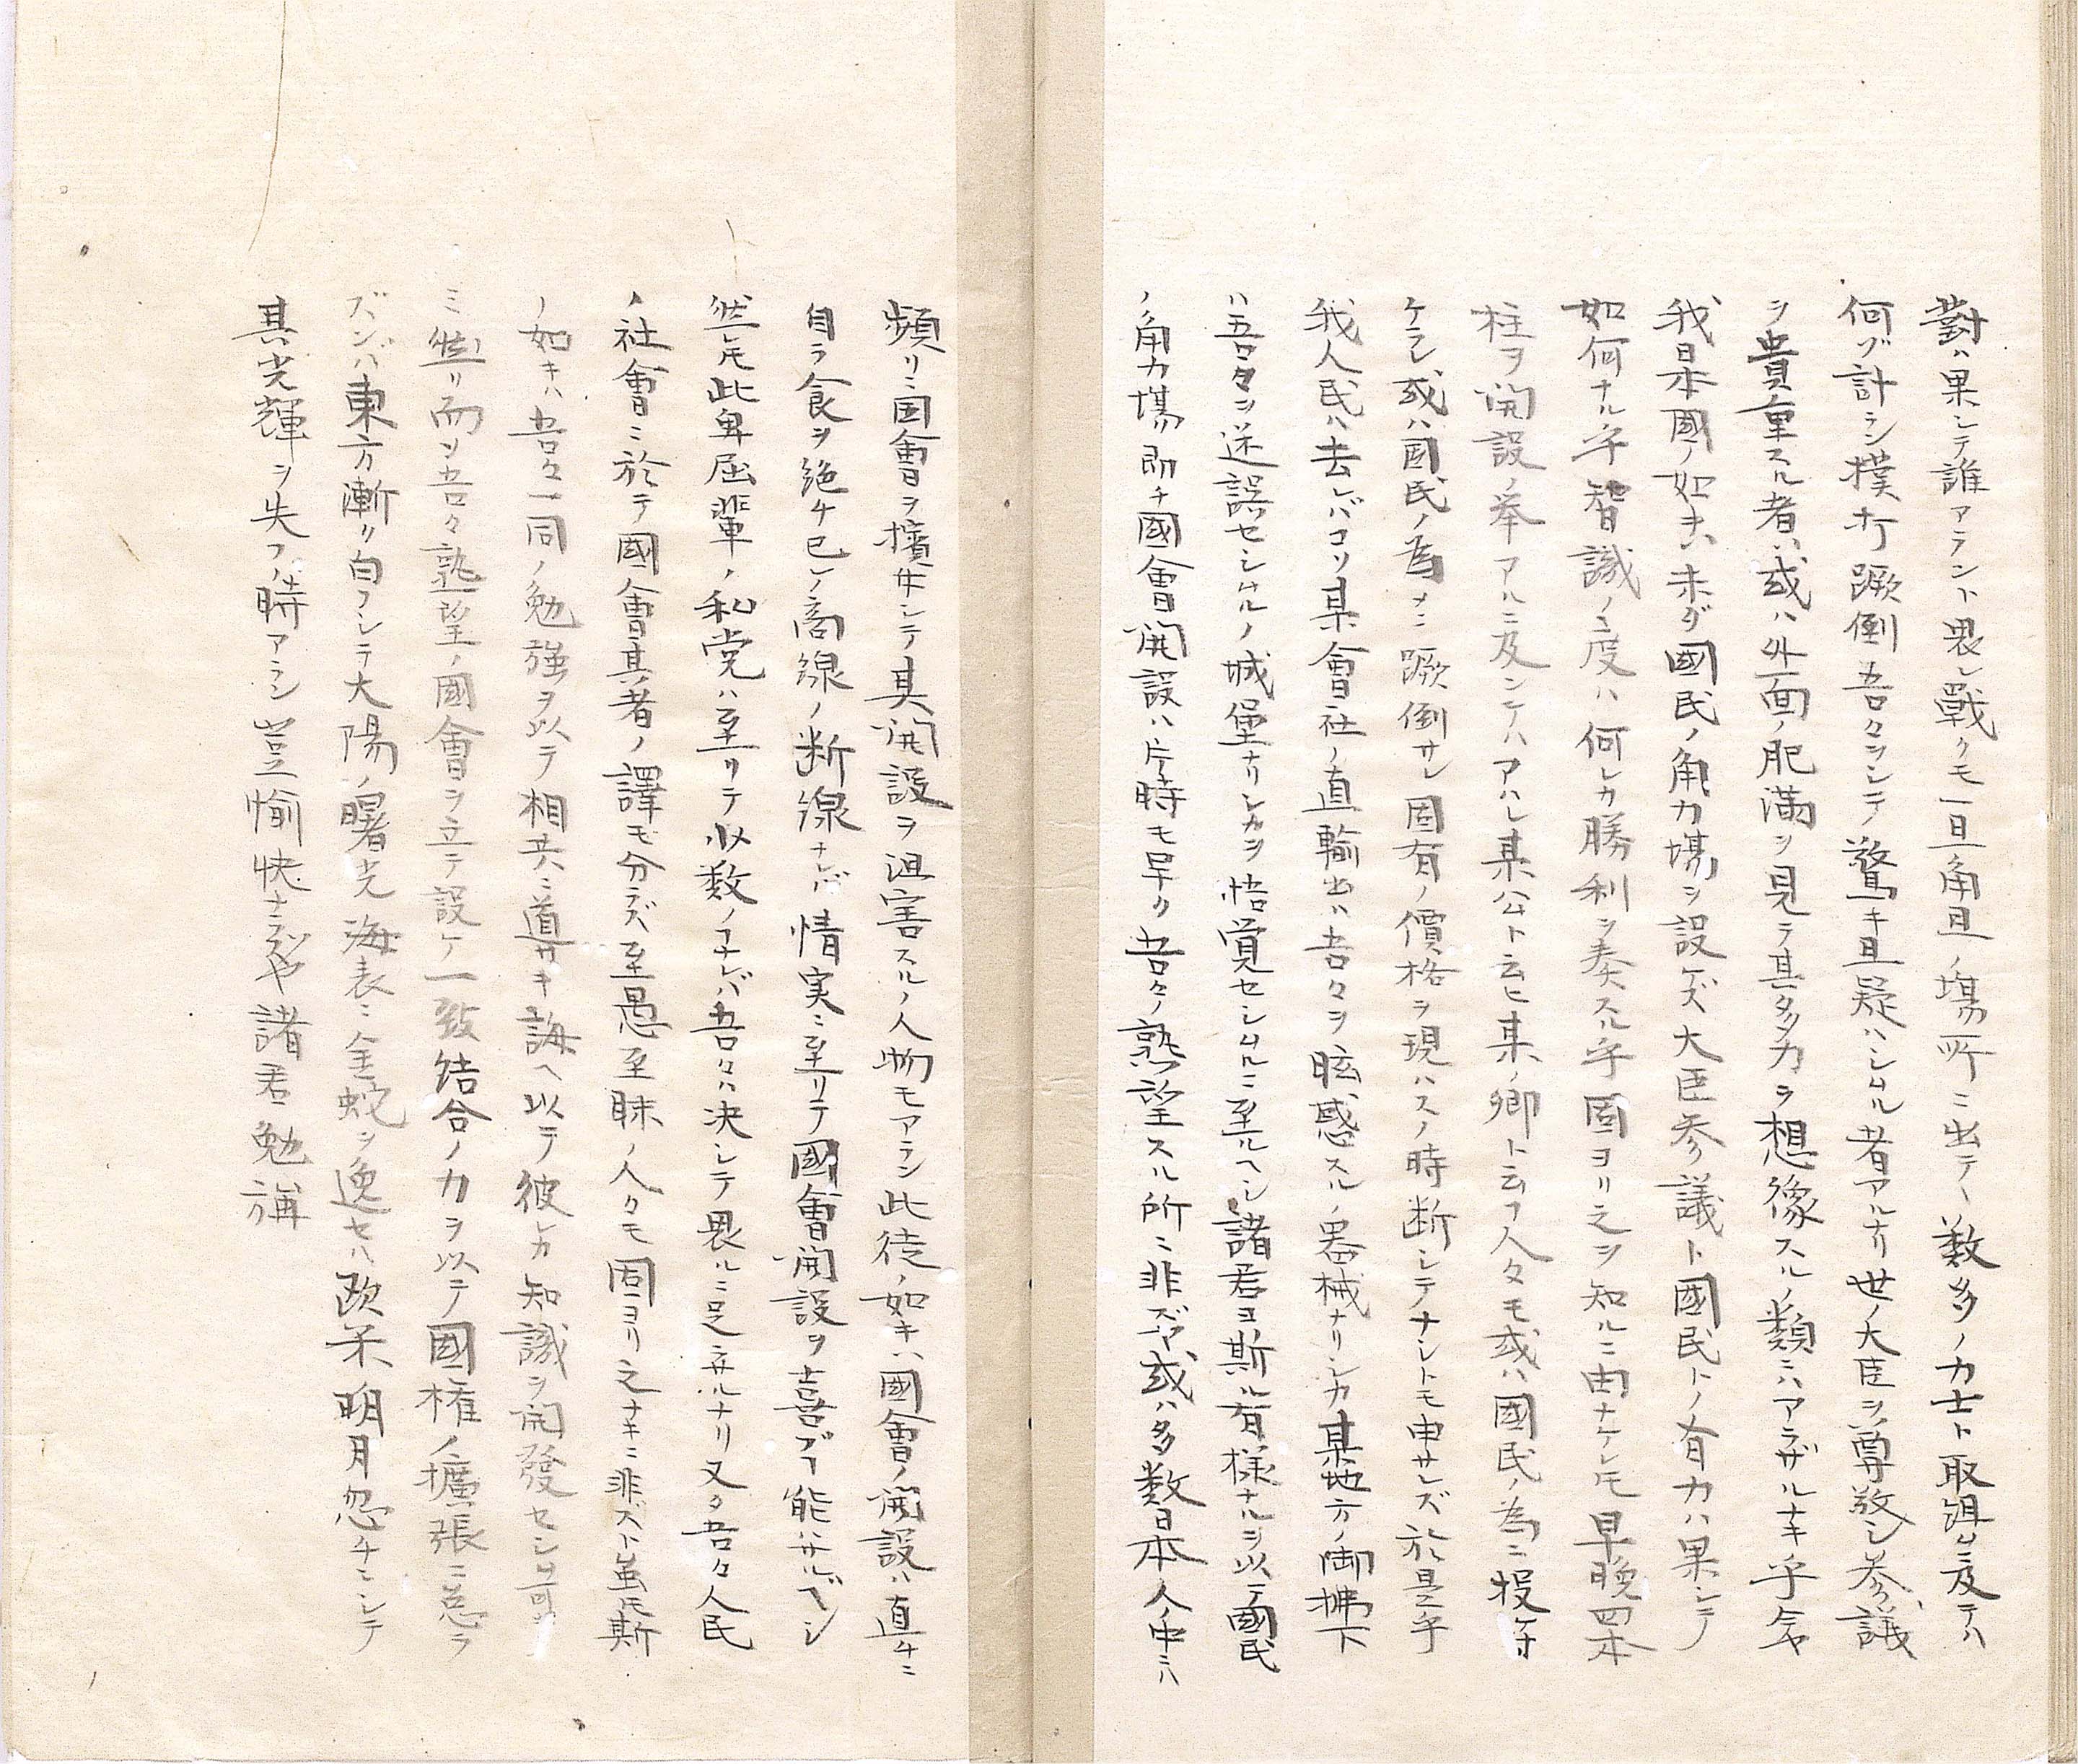 對ハ果シテ誰アラント畏レ戰クモ一旦角觝ノ塲所ニ出テ丶数多ノ力士ト取組ムニ及テハ
何ゾ計ラン撲打蹶倒吾々ヲシテ驚キ且疑ハシムル者アルナリ世ノ大臣ヲ尊敬シ参議
ヲ貴重スル者ハ或ハ外面ノ肥満ヲ見テ其多力ヲ想像スルノ類ニハアラザルナキ乎今ヤ
我日本國ノ如キハ未ダ國民ノ角力塲ヲ設ケズ大臣参議ト國民トノ有力ハ果シテ
如何ナル乎智識ノ度ハ何レカ勝利ヲ奏スル乎固ヨリ之ヲ知ルニ由ナケレ𪜈早晩四本
柱ヲ開設ノ举アルニ及ンテハアハレ某公ト云ヒ某卿ト云フ人々モ或ハ國民ノ為ニ投ケ
ケラレ或ハ國民ノ為メニ蹶倒サレ固有ノ價格ヲ現ハスノ時断シテナシトモ申サレズ於是乎
我人民ハ去レバコソ某會社ノ直輸出ハ吾々ヲ眩惑スルノ器械ナリシカ某地方ノ御拂下
ハ吾々ヲ迷誤セシムルノ城堡ナリシカヲ悟覚セシムルニ至ルヘシ諸君ヨ斯ル有様ナルヲ以テ國民
ノ角力塲即チ國會開設ハ片時モ早ク吾々ノ熟望スル所ニ非ズヤ或ハ多数日本人ノ中ニハ
頻リニ国會ヲ擯斥シテ其開設ヲ沮害スルノ人物モアラン此徒ノ如キハ國會ノ開設ハ直チニ
自ラ食ヲ絶チ已レノ商線ノ断線ナレバ情実ニ至リテ國會開設ヲ喜ブ𬼀能ハサルベシ
然レ𪜈此卑屈輩ノ私党ハ至リテ少数ノ𬼀ナレバ吾々ハ决シテ畏ルヽニ足ラザルナリ又タ吾々人民
ノ社會ニ於テ國會其者ノ譯モ分ラズ至愚至昧ノ人々モ固ヨリ之ナキニ非ズト虽𪜈斯
ノ如キハ吾々一同ノ勉強ヲ以テ相共ニ導キ誨ヘ以テ彼レカ知識ヲ開發セシム可キ
ミ然リ而シテ吾々熟望ノ國會ヲ立テ設ケ一致結合ノ力ヲ以テ國権ノ擴張ニ怠ラ
ズンバ東方漸ク白フシテ大陽ノ曙光海表ニ金蛇ヲ逸セハ欧米ノ明月忽チニシテ
其光輝ヲ失フノ時アラン豈愉快ナラズヤ諸君勉旃